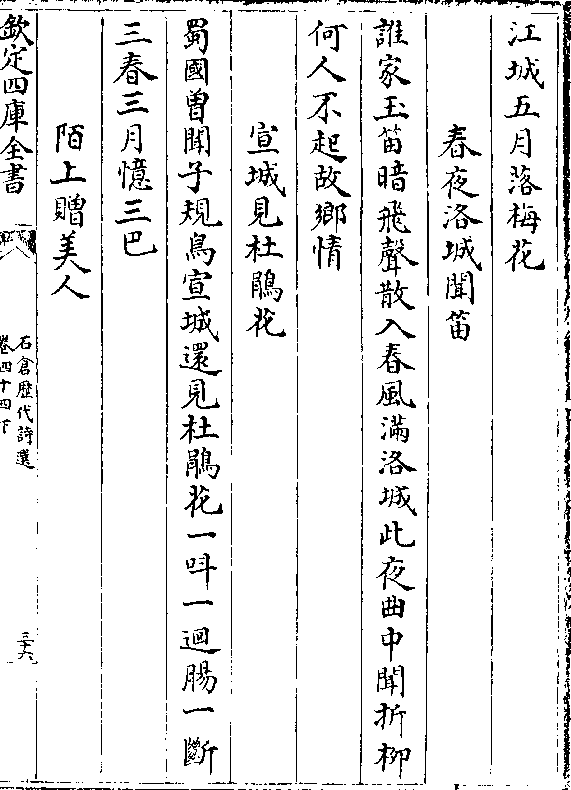 江城五月落梅花
春夜洛城聞笛
誰家玉笛暗飛聲散入春風滿洛城此夜曲中聞折柳
何人不起故鄉情
宣城見杜鵑花
蜀國曽聞子規鳥宣城還見杜鵑花一呌一迴腸一斷
三春三月憶三巴
陌上贈美人
欽定四庫全書
石倉歴代詩選
卷四十四下
三十六